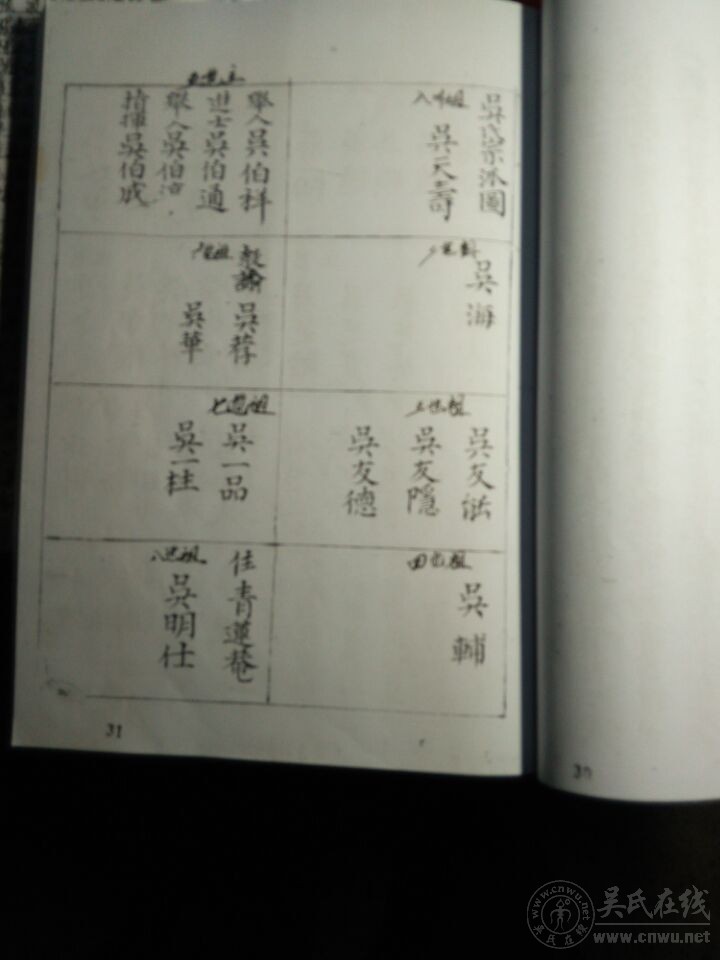 吳氏宗派圖
入川祖
吳天壽
吳海
吳友
吳友隱
吳友德
四世祖
吳輔
舉人吳伯祥
進士吳伯通
舉人吳伯
指揮吳伯成
教諭
吳荐
吳華
七世祖
吳一品
吳一桂
住青蓮菴
八世祖
吳明仕
31
30
www.cnwu.net
吴氏在线
吴氏在线
www.cnwu.net